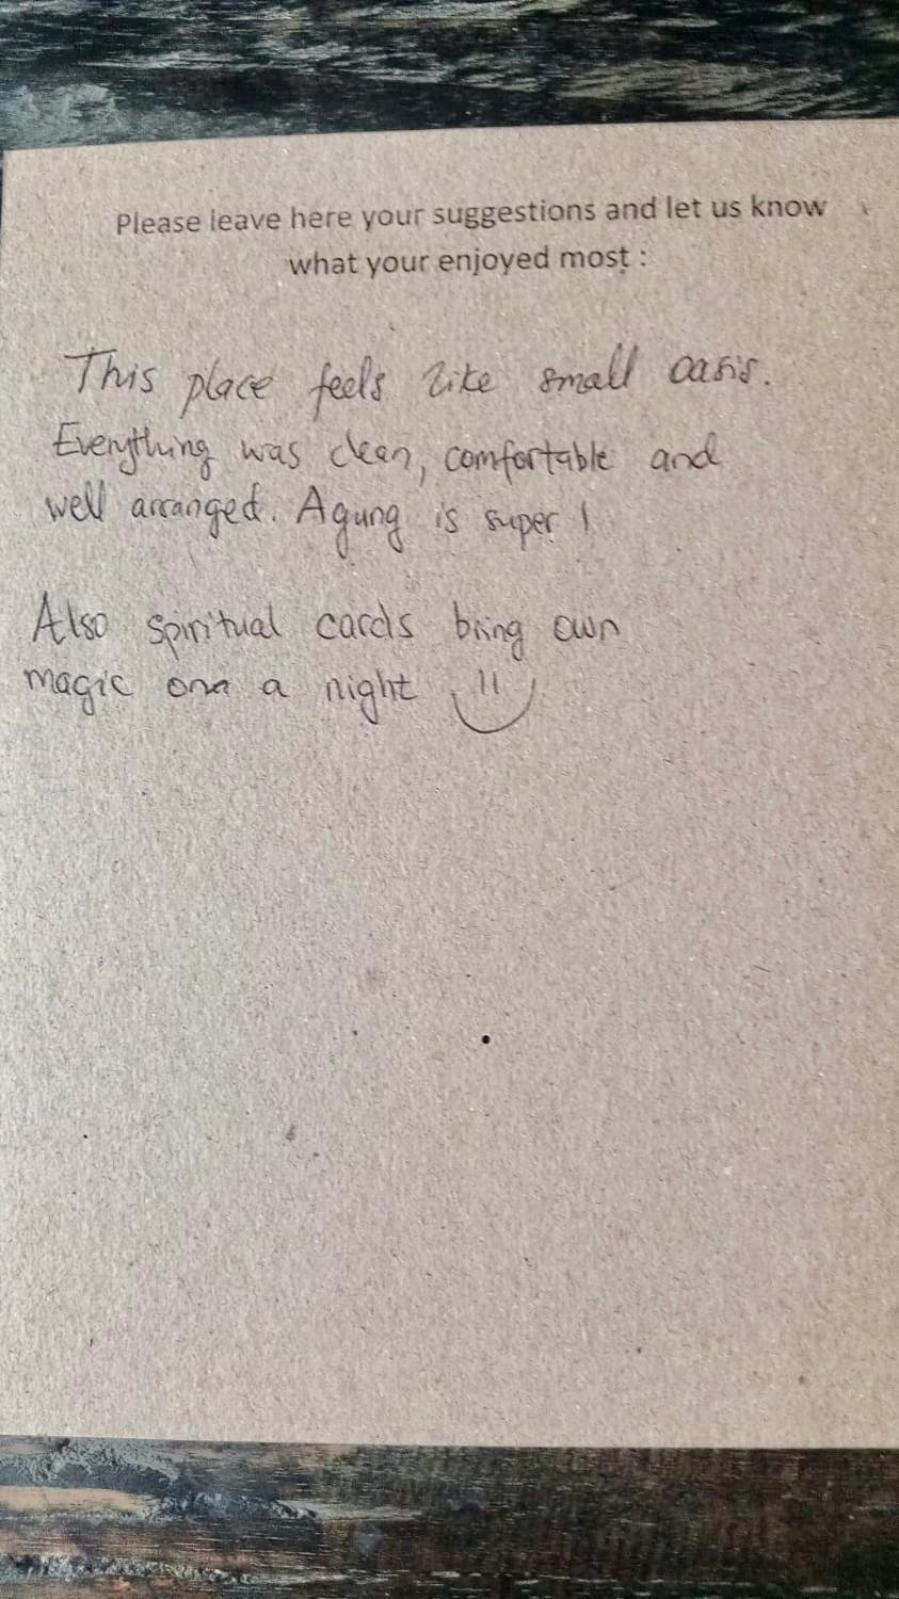 Please leave here your suggestions and let us know
what your enjoyed most :
This place feels like small oasis.
Everything was clean, comfortable and
well arranged. Agung is super !
Also spiritual cards bring own
magic a night